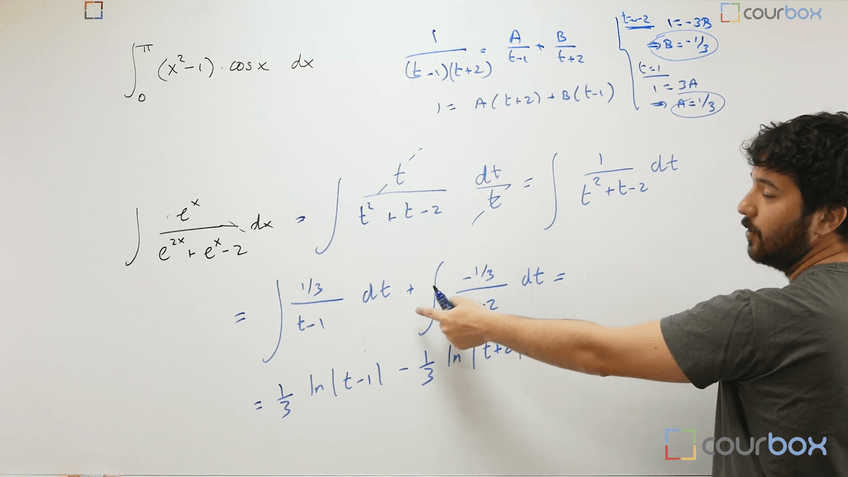 courbox
∫₀^π (x²-1)·cosx dx
1/((t-1)(t+2)) = A/(t-1) + B/(t+2)
1 = A(t+2) + B(t-1)
t=-2 1=-3B
⇒ B=-1/3
t=1
1=3A
⇒ A=1/3
∫ e^x/(e^(2x)+e^x-2) dx = ∫ t/(t²+t-2) dt/t = ∫ 1/(t²+t-2) dt
= ∫ (1/3)/(t-1) dt + ∫ (-1/3)/ 2 dt =
= 1/3 ln|t-1| - 1/3 ln|t+2|
courbox